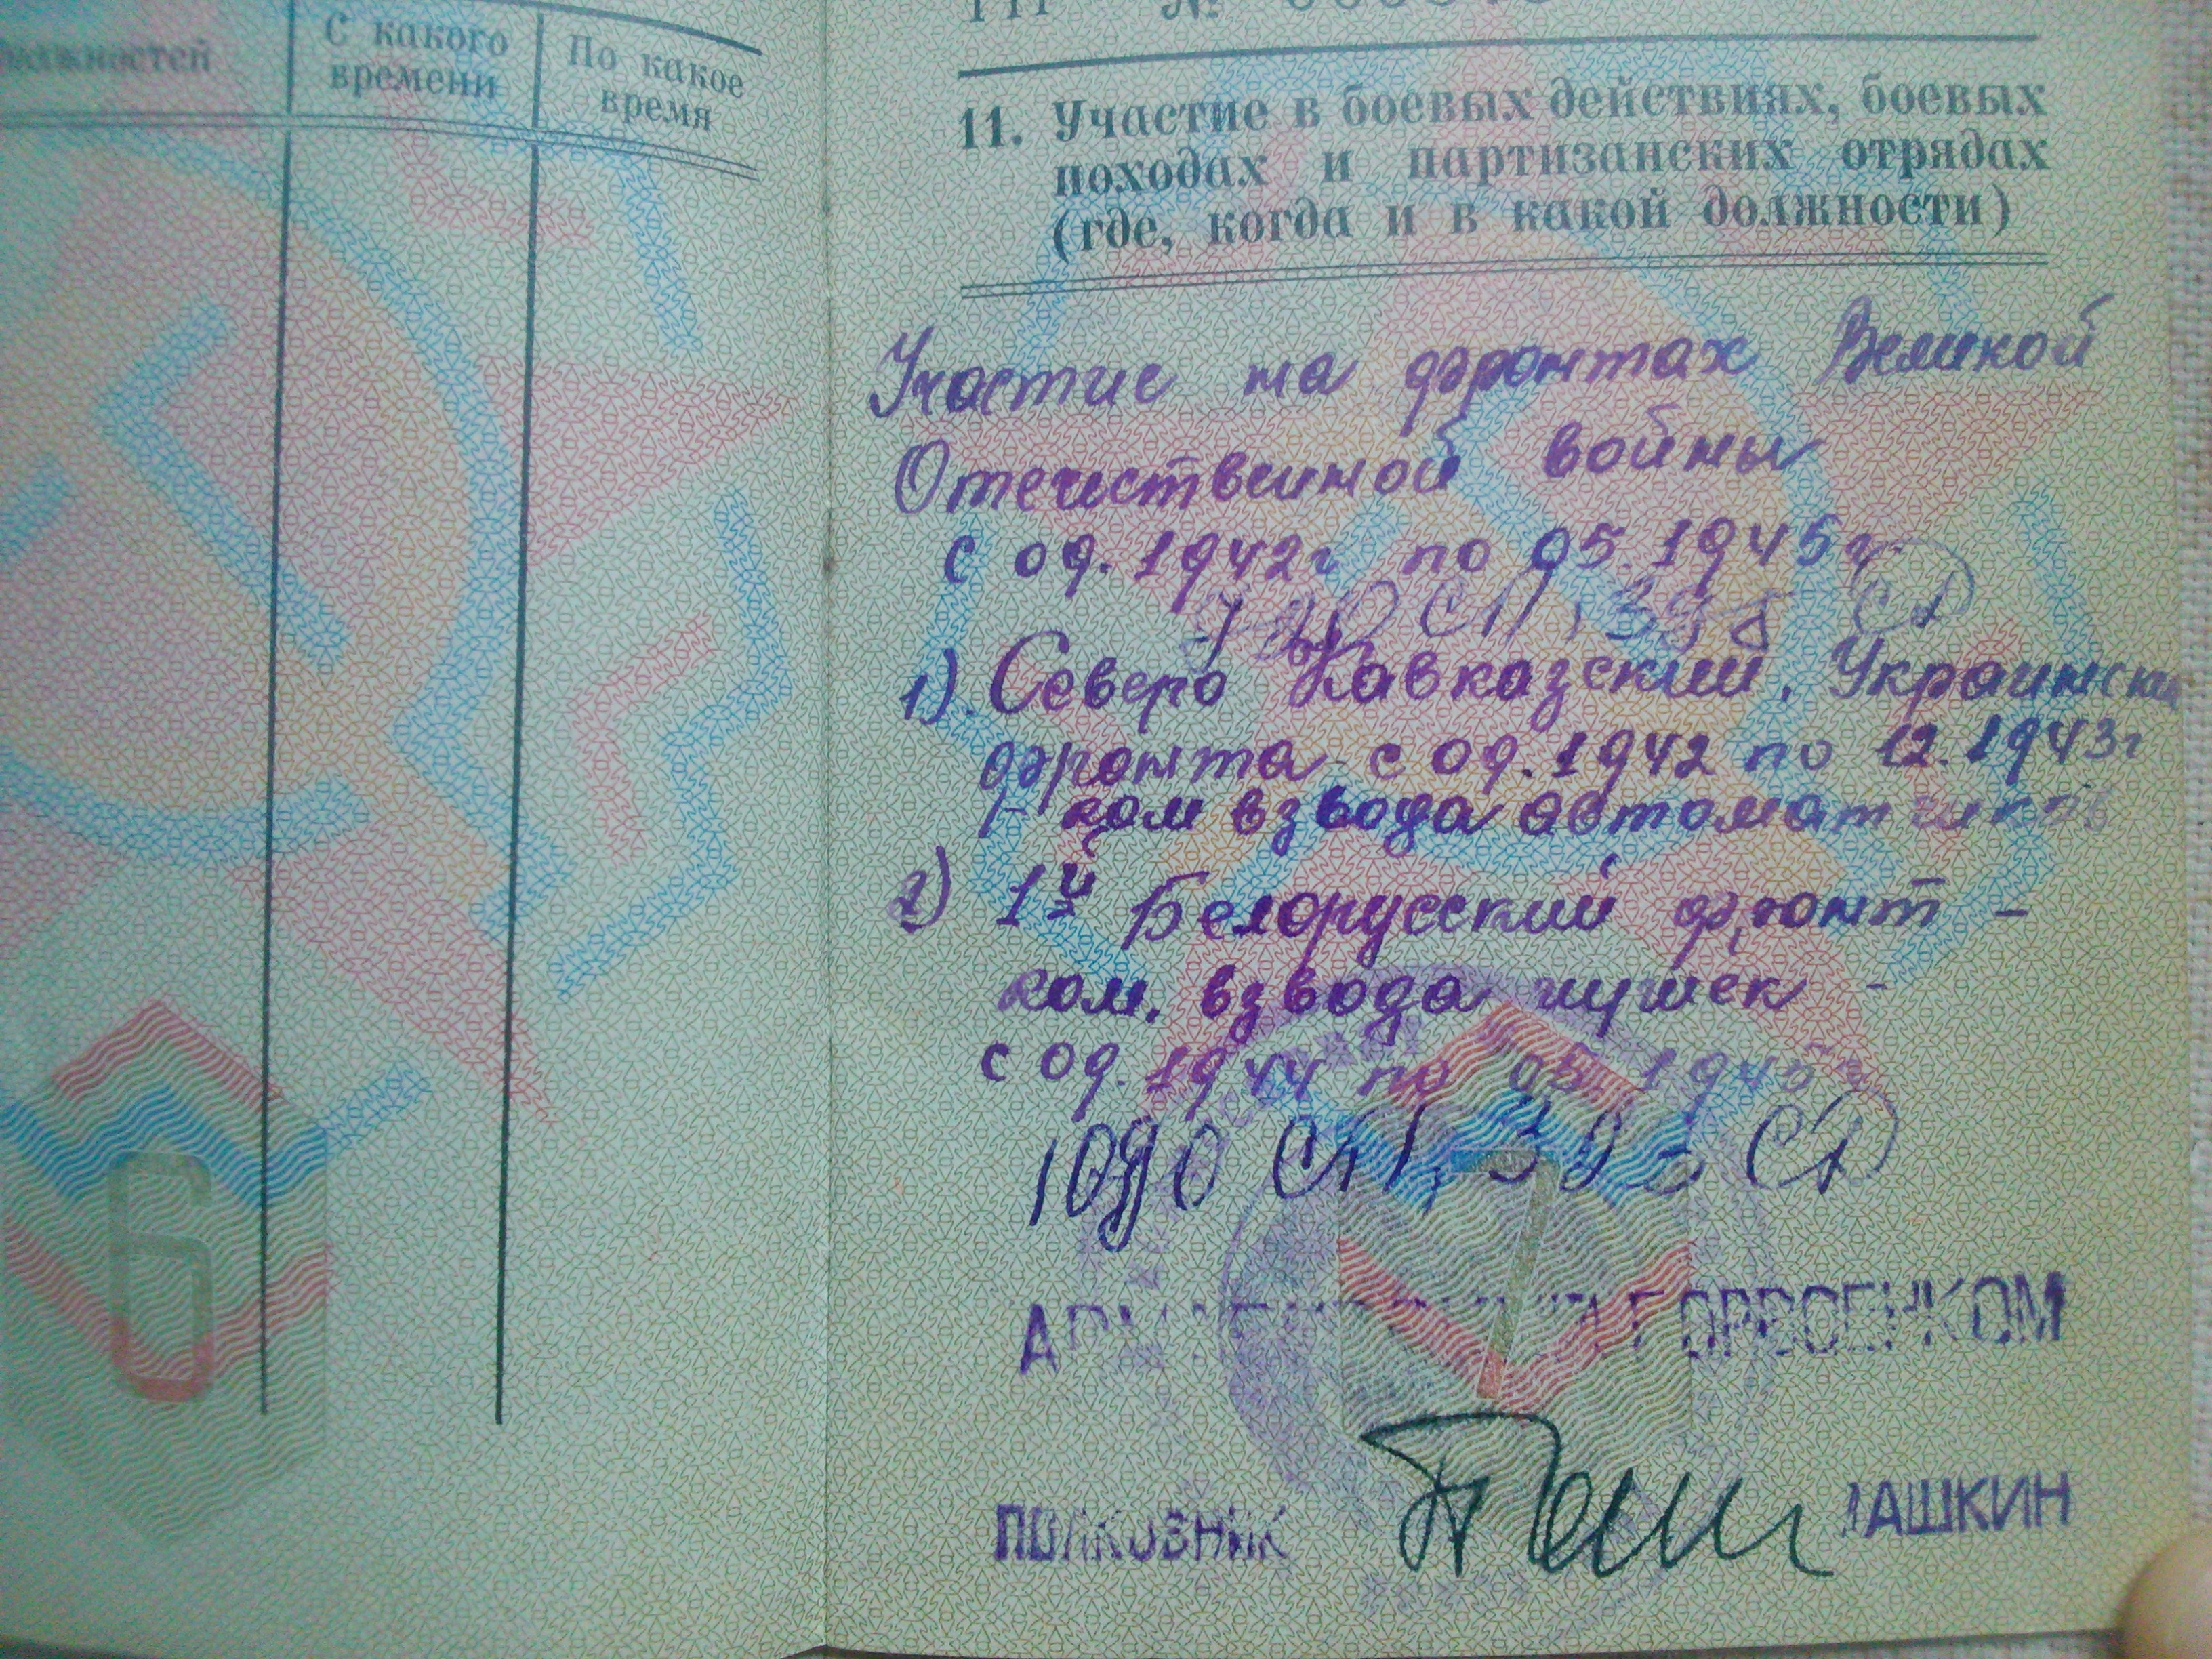 должностей
С какого
времени
По какое
время
6
№
11. Участие в боевых действиях, боевых
походах и партизанских отрядах
(где, когда и в какой должности)
Участие на фронтах Великой
Отечественной войны
с 09.1942г по 05.1945г.
СП, СД
1). Северо Кавказский, Украински
фронта с 09.1942 по 12.1943г
- ком взвода автоматчиков
2) 1й Белорусский фронт -
ком. взвода пушек -
с 09.1944 по 05 1945г
1090 СП, СД
7
ГОРВОЕНКОМ
ПОЛКОВНИК